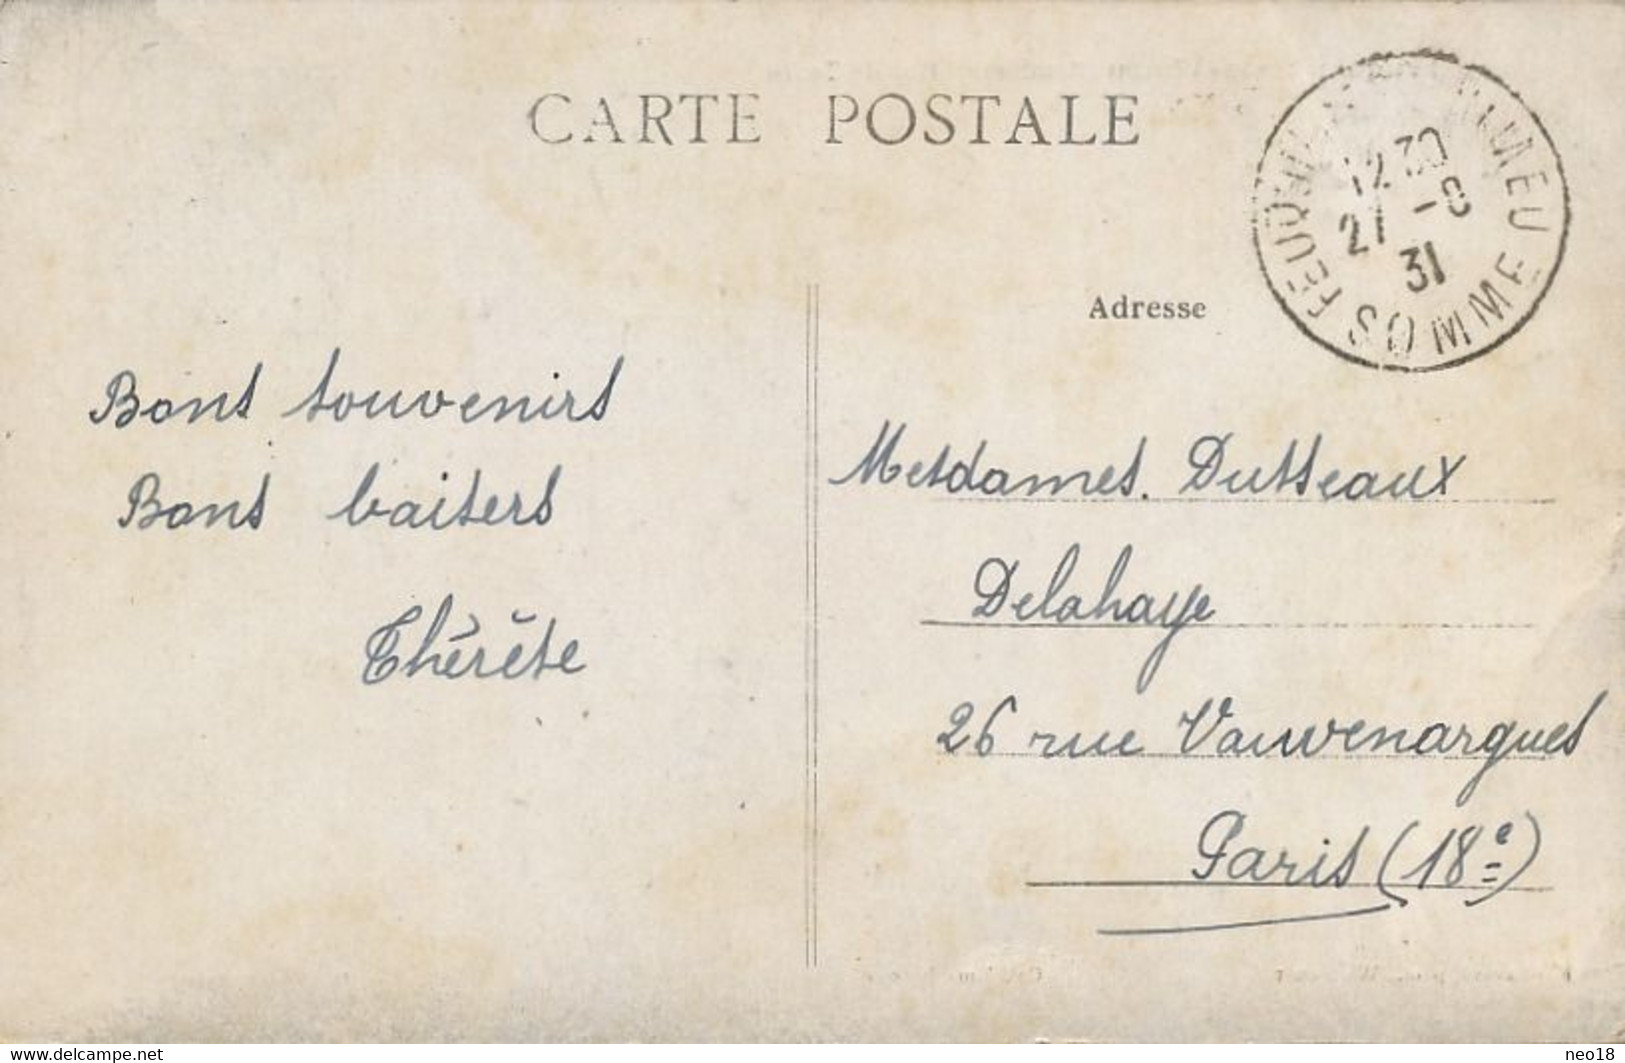 CARTE POSTALE
FEUQUIÈRES
SOMME
12 30
21 -8
31
Adresse
Bons souvenirs
Bons baisers
Thérèse
Mesdames. Dusseaux
Delahaye
26 rue Vauvenargues
Paris (18e)
www.delcampe.net
neo18